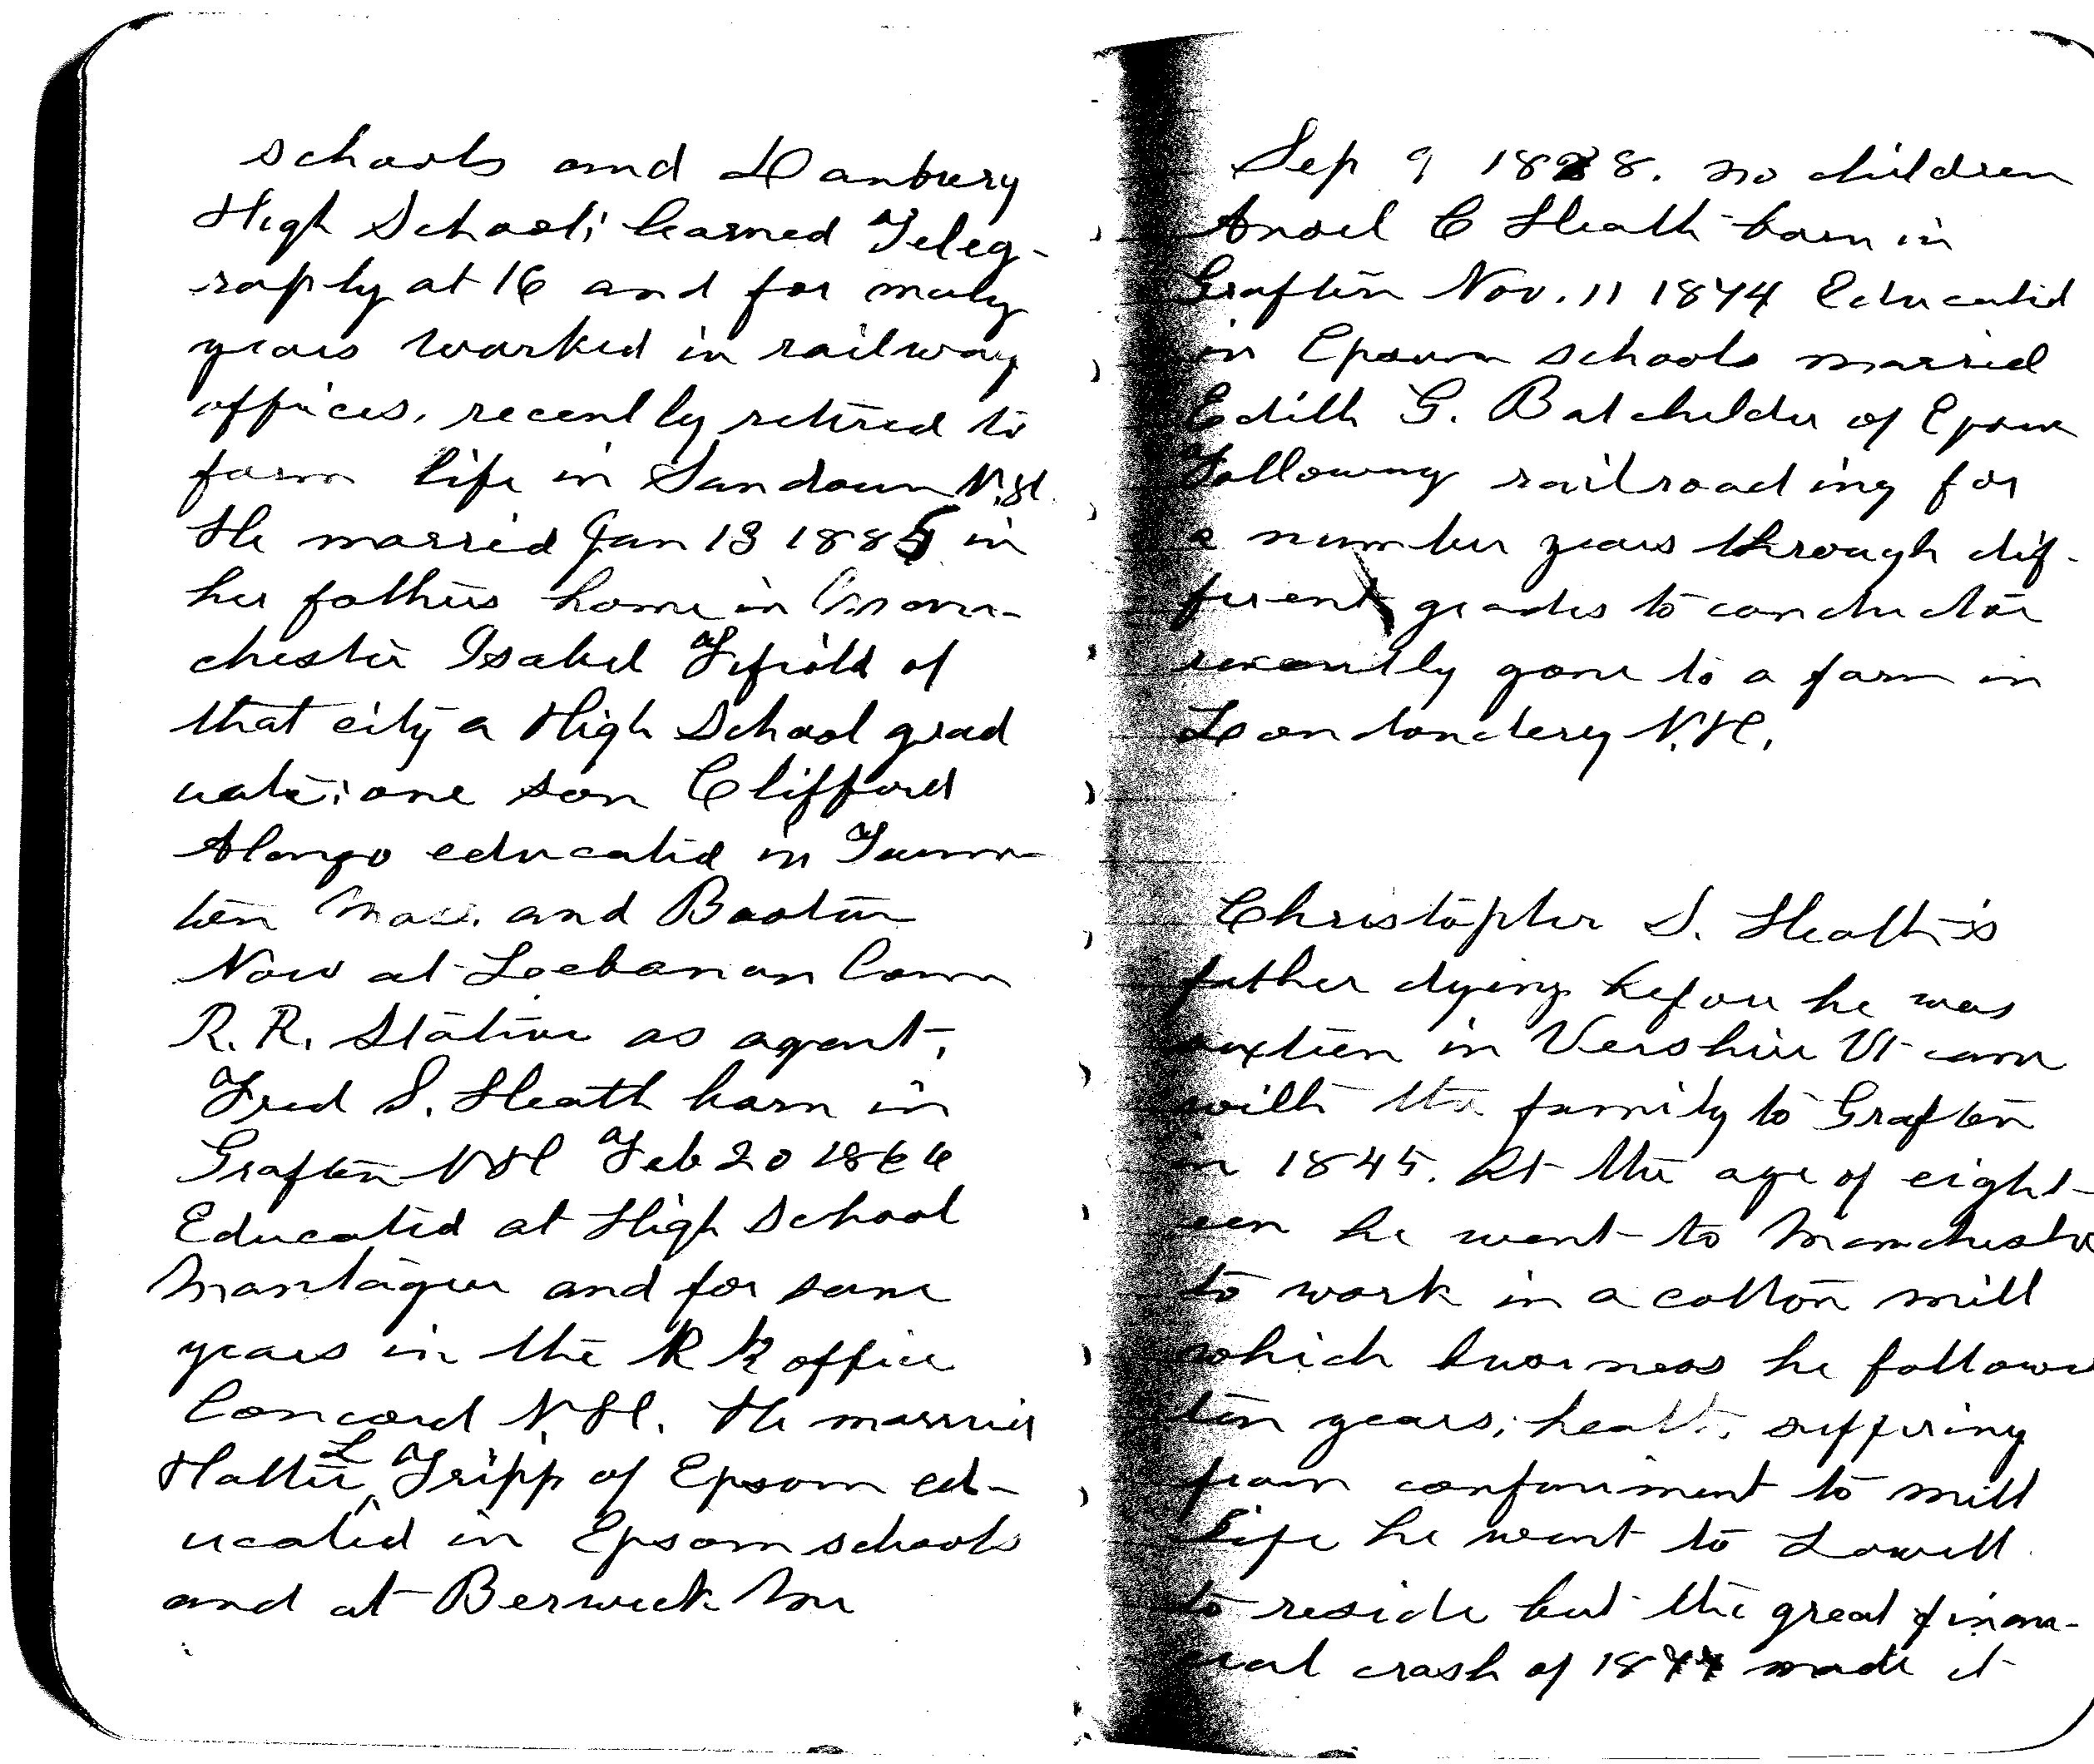 schools and Danbury
High School; learned Teleg-
raphy at 16 and for many
years worked in railway
offices, recently retired to
farm life in Sandown N.H.
He married Jan 13 1885 in
her fathers home in Man-
chester Isabel Fifield of
that city a High School grad
uate; one son Clifford
Alonzo educated in Taun-
ton Mass. and Boston
Now at Leebanon Conn
R.R. Station as agent.
Fred S. Heath born in
Grafton NH Feb 20 1866
Educated at High School
Montague and for some
years in the R R office
Concord N.H. He married
Hattie L Tripp of Epsom ed-
ucated in Epsom schools
and at Berwick Me
Sep 9 1828. no children
Ansel C Heath born in
Grafton Nov. 11 1874 Educated
in Epsom schools married
Edith G. Batchelder of Epsom
Following railroading for
a number years through dif-
ferent grades to conductor
recently gone to a farm in
Londondery N.H.
Christopher S. Heath's
father dying before he was
sixteen in Vershire Vt came
with the family to Grafton
in 1845. At the age of eight-
een he went to Manchester
to work in a cotton mill
which business he followed
ten years; health suffering
from confinement to mill
life he went to Lowell
to reside but the great finan-
cial crash of made it